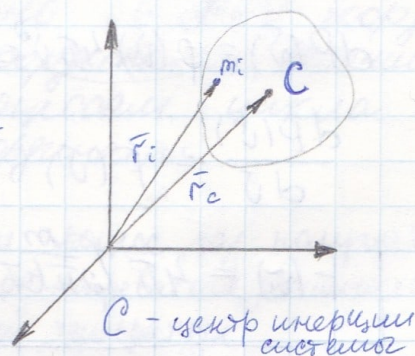 mᵢ
C
r̄ᵢ
r̄c
C - центр инерции
системы